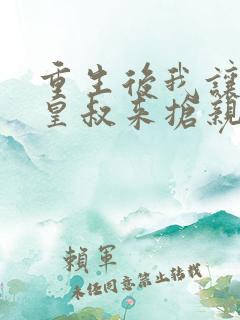 重生後我讓
皇叔来搶親
賴軍
未经同意禁止转载